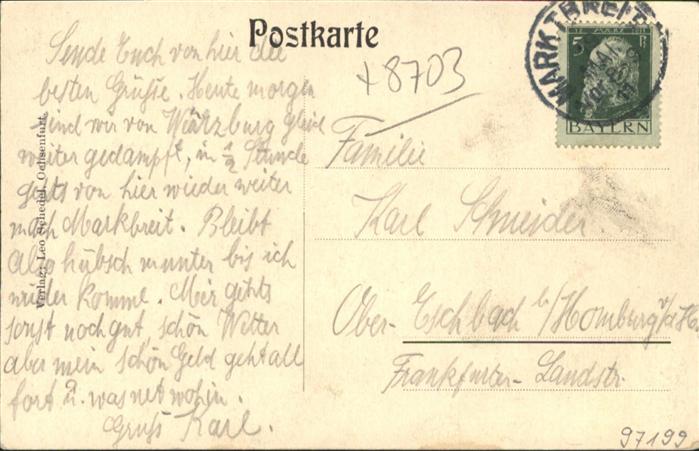 Postkarte
+8703
MARKTBREIT
5
BAYERN
Sende Euch von hier die
besten Grüße. Heute morgen
sind wir von Würzburg gleich
weiter gedampft, in 1/2 Stunde
gehts von hier wieder weiter
nach Markbreit. Bleibt
Also hübsch munter bis ich
wieder komme. Mir gehts
sonst noch gut schön Wetter
aber mein schön Geld geht all
fort u. was net wohin.
Gruß Karl.
Familie
Karl Schneider.
Ober-Eschbach b/Homburg v/d H.
Frankfurter-Landstr.
Verlag: Leo Schedel, Ochsenfurt.
97199